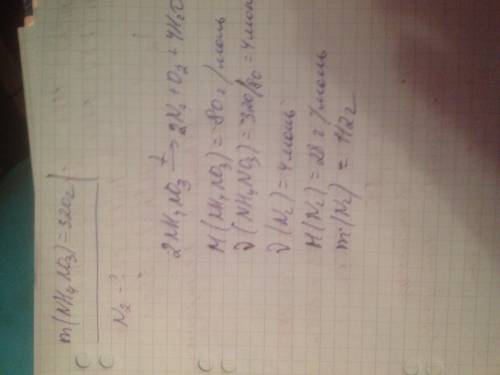 m(NH₄NO₃) = 320г
N₂ - ?
2NH₄NO₃ →ᵗ 2N₂ + O₂ + 4H₂O
M(NH₄NO₃) = 80 г/моль
ν(NH₄NO₃) = 320/80 = 4 моль
ν(N₂) = 4 моль
M(N₂) = 28 г/моль
m(N₂) = 112 г